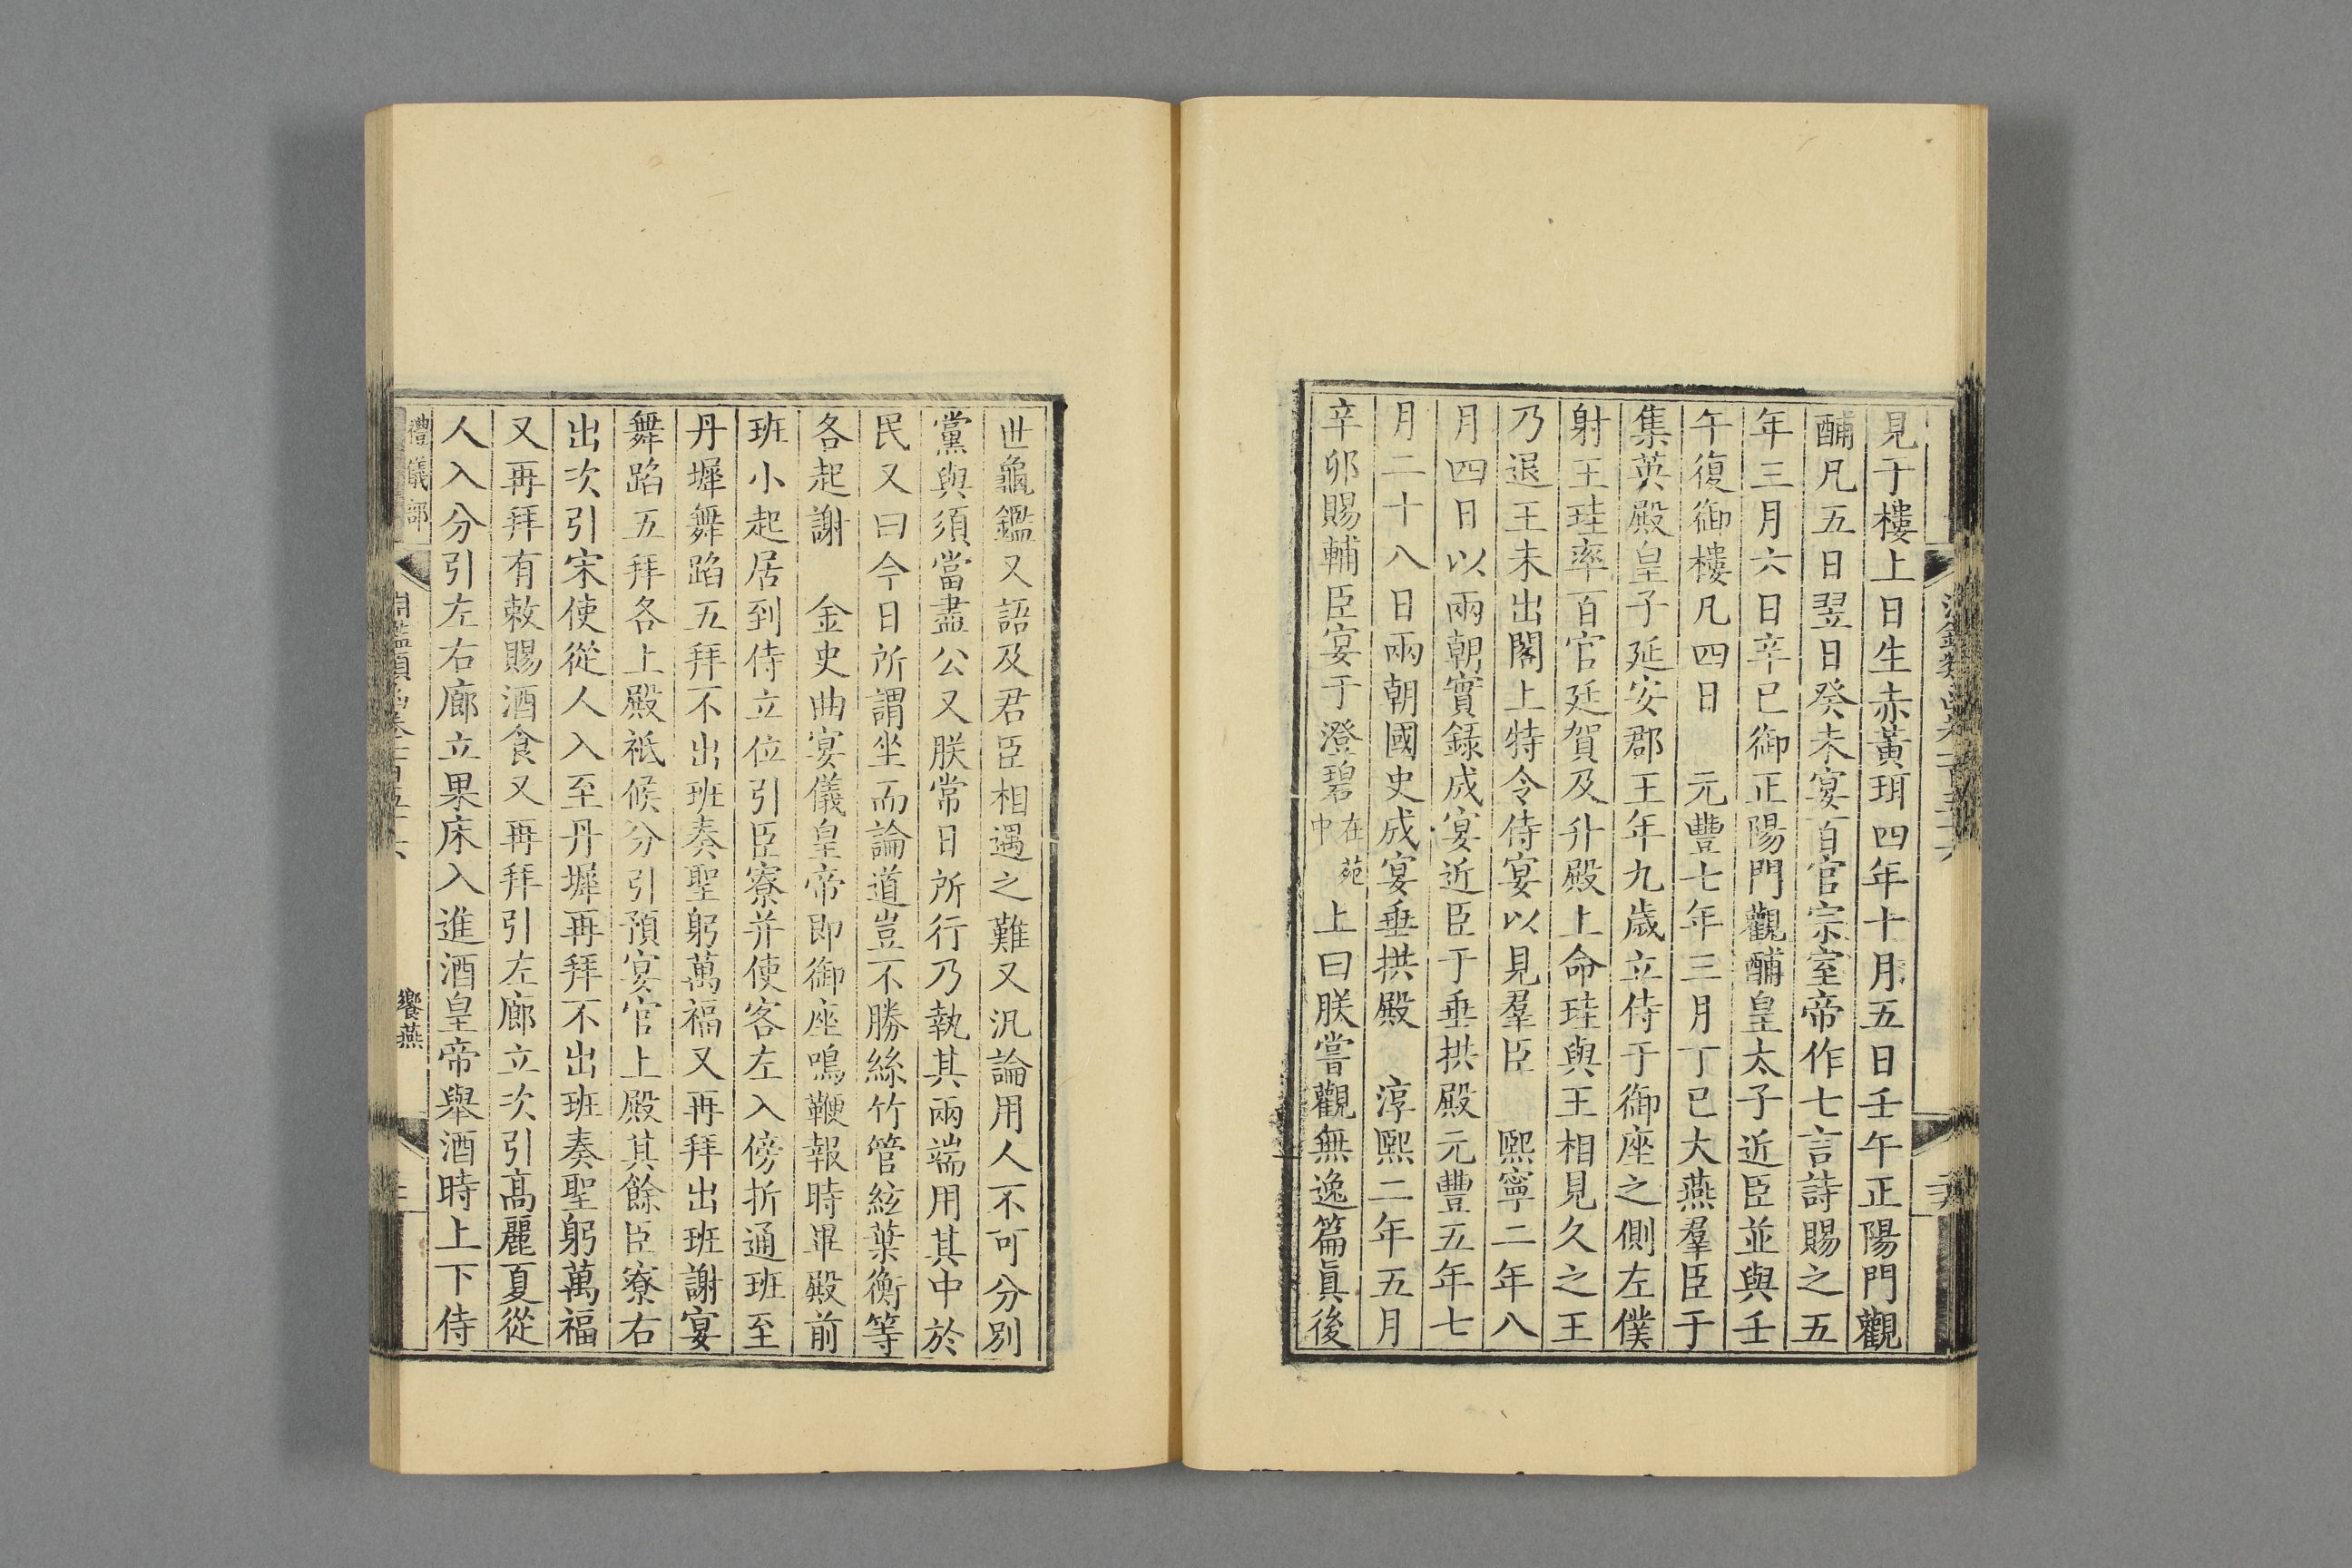 見于樓上日生赤黃珥四年十月五日壬午正陽門觀
酺凡五日翌日癸未宴百官宗室帝作七言詩賜之五
年三月六日辛巳御正陽門觀酺皇太子近臣並與壬
午復御樓凡四日　元豐七年三月丁巳大燕羣臣于
集英殿皇子延安郡王年九歲立侍于御座之側左僕
射王珪率百官廷賀及升殿上命珪與王相見久之王
乃退王未出閤上特令侍宴以見羣臣　熙寧二年八
月四日以兩朝實錄成宴近臣于垂拱殿元豐五年七
月二十八日兩朝國史成宴垂拱殿　淳熙二年五月
辛卯賜輔臣宴于澄碧在苑中上曰朕嘗觀無逸篇眞後
世龜鑑又語及君臣相遇之難又汎論用人不可分別
黨與須當盡公又朕常日所行乃執其兩端用其中於
民又曰今日所謂坐而論道豈不勝絲竹管絃葉衡等
各起謝　金史曲宴儀皇帝即御座鳴鞭報時畢殿前
班小起居到侍立位引臣寮并使客左入傍折通班至
丹墀舞蹈五拜不出班奏聖躬萬福又再拜出班謝宴
舞蹈五拜各上殿祗候分引預宴官上殿其餘臣寮右
出次引宋使從人入至丹墀再拜不出班奏聖躬萬福
又再拜有敕賜酒食又再拜引左廊立次引高麗夏從
人入分引左右廊立果床入進酒皇帝舉酒時上下侍
禮儀部
饗燕